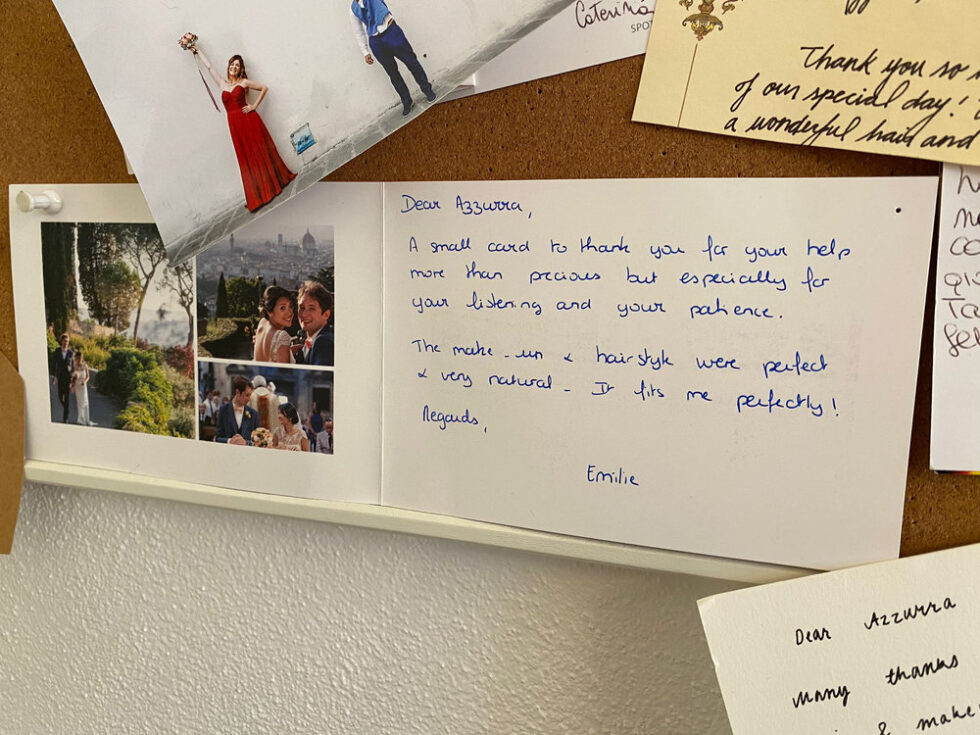 Caterina
SPO
Thank you so
of our special day!
a wonderful hair and
Dear Azzurra,
A small card to thank you for your help
more than precious but especially for
your listening and your patience.
The make-up & hairstyle were perfect
& very natural - It fits me perfectly!
Regards,
Emilie
Dear Azzurra
Many thanks
& make